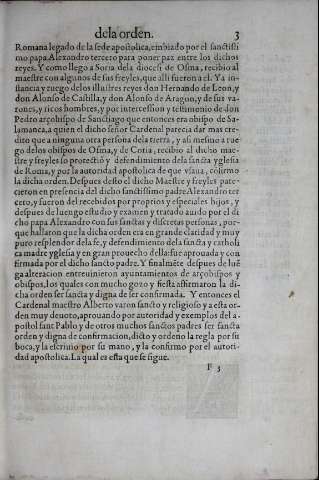 dela orden. 3
Romana legado de la sede apostolica, embiado por el sanctissi
mo papa. Alexandro tercero para poner paz entre los dichos
reyes. Y como llego a Soria dela diocesi de Osma, recibio al
maestre con algunos de sus freyles, que alli fueron a el. Ya in-
stancia y ruego delos illustres reyes don Hernando de Leon, y
don Alonso de Castilla, y don Alonso de Aragon, y de sus va-
rones, y ricos hombres, y por intercession y testimonio de don
Pedro arçobispo de Sanctiago que entonces era obispo de Sa-
lamanca, a quien el dicho señor Cardenal parecia dar mas cre-
dito que a ninguna otra persona dela tierra, y asi mesmo a rue
go delos obispos de Osma, y de Coria, recibio al dicho mae-
stre y freyles so protectiō y defendimiento dela sancta yglesia
de Roma, y por la autoridad apostolica de que vsaua, cōfirmo
la dicha orden. Despues desto el dicho Maestre y freyles pare-
cieron en presencia del dicho sanctissimo padre Alexandro ter
cero, y fueron del recebidos por proprios y especiales hijos, y
despues de luengo estudio y examen y tratado auido por el di
cho papa Alexandro con sus sanctas y discretas personas, por-
que hallaron que la dicha orden era en grande claridad y muy
puro resplendor dela fe, y defendimiento dela sancta y catholi
ca madre yglesia y en gran prouecho della: fue aprouada y con
firmada por el dicho sancto padre. Y finalmēte despues de luē
ga alteracion entreuinieron ayuntamientos de arçobispos y
obispos, los quales con mucho gozo y fiesta affirmaron la di-
cha orden ser sancta y digna de ser confirmada. Y entonces el
Cardenal maestro Alberto varon sancto y religioso y a esta or-
den muy deuoto, aprouando por autoridad y exemplos del a-
postol sant Pablo y de otros muchos sanctos padres ser sancta
orden y digna de confirmacion, dicto y ordeno la regla por su
boca, y la escriuio por su mano, y la confirmo por el autori-
dad apostolica. La qual es esta que se sigue.
F 3